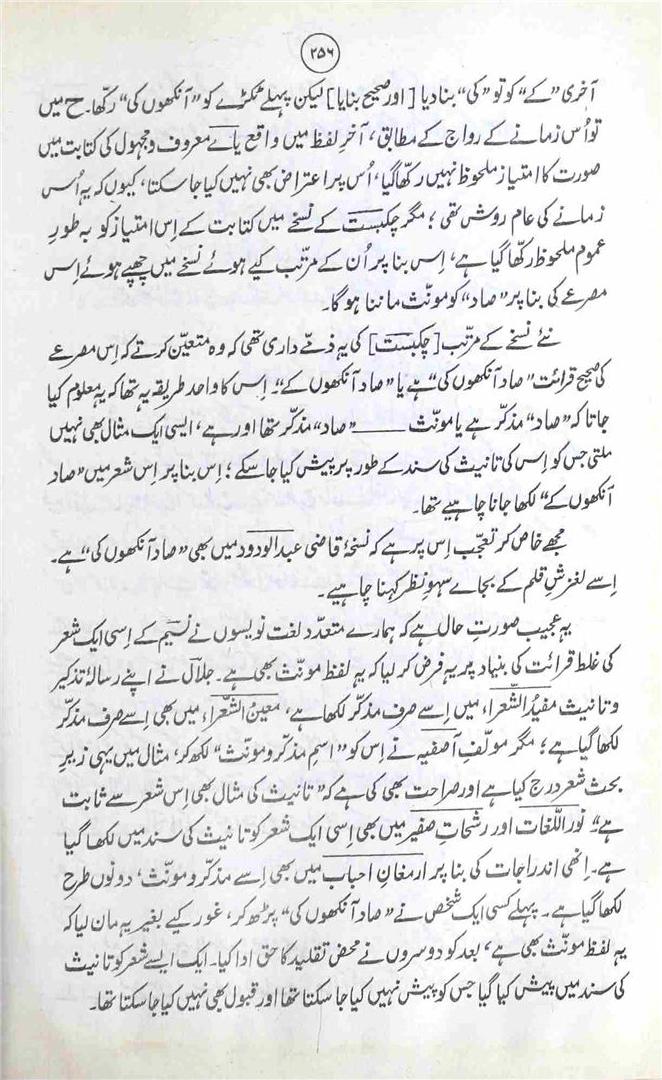 ۲۵۶
آخری "کے" کو تو "کی" بنادیا [اور صحیح بنایا] لیکن پہلے ٹکڑے کو "آنکھوں کی" رکھا۔ ح میں
تو اُس زمانے کے رواج کے مطابق، آخرِ لفظ میں واقع یاے معروف و مجہول کی کتابت میں
صورت کا امتیاز ملحوظ نہیں رکھا گیا، اُس پر اعتراض بھی نہیں کیا جا سکتا، کیوں کہ یہ اُس
زمانے کی عام روش تھی؛ مگر چکبست کے نسخے میں کتابت کے اِس امتیاز کو بہ طورِ
عموم ملحوظ رکھا گیا ہے، اِس بنا پر اُن کے مرتّب کیے ہوئے نسخے میں چھپے ہوئے اِس
مصرعے کی بنا پر "صاد" کو مونّث ماننا ہوگا۔
نئے نسخے کے مرتّب [چکبست] کی یہ ذمّے داری تھی کہ وہ متعیّن کرتے کہ اِس مصرعے
کی صحیح قرائت "صاد آنکھوں کی" ہے یا "صاد آنکھوں کے"۔ اِس کا واحد طریقہ یہ تھا کہ یہ معلوم کیا
جاتا کہ "صاد" مذکّر ہے یا مونّث ——— "صاد" مذکّر تھا اور ہے، ایسی ایک مثال بھی نہیں
ملتی جس کو اِس کی تانیث کی سند کے طور پر پیش کیا جا سکے؛ اِس بنا پر اِس شعر میں "صاد
آنکھوں کے" لکھا جانا چاہیے تھا۔
مجھے خاص کر تعجّب اِس پر ہے کہ نسخۂ قاضی عبدالودود میں بھی "صاد آنکھوں کی" ہے۔
اِسے لغزشِ قلم کے بجاے سہوِ نظر کہنا چاہیے۔
یہ عجیب صورتِ حال ہے کہ ہمارے متعدّد لغت نویسوں نے نسیم کے اِسی ایک شعر
کی غلط قرائت کی بنیاد پر یہ فرض کر لیا کہ یہ لفظ مونّث بھی ہے۔ جلال نے اپنے رسالۂ تذکیر
و تانیث مفید الشّعراء میں اِسے صرف مذکّر لکھا ہے، معین الشّعراء میں بھی اِسے صرف مذکّر
لکھا گیا ہے؛ مگر مولّفِ آصفیہ نے اِس کو "اسمِ مذکّر و مونّث" لکھ کر، مثال میں یہی زیرِ
بحث شعر درج کیا ہے اور صراحت بھی کی ہے کہ "تانیث کی مثال بھی اِس شعر سے ثابت
ہے"۔ نوراللّغات اور رشحاتِ صفیر میں بھی اِسی ایک شعر کو تانیث کی سند میں لکھا گیا
ہے۔ اِنھی اندراجات کی بنا پر ارمغانِ احباب میں بھی اِسے مذکّر و مونّث، دونوں طرح
لکھا گیا ہے۔ پہلے کسی ایک شخص نے "صاد آنکھوں کی" پڑھ کر، غور کیے بغیر یہ مان لیا کہ
یہ لفظ مونّث بھی ہے، بعد کو دوسروں نے محض تقلید کا حق ادا کیا۔ ایک ایسے شعر کو تانیث
کی سند میں پیش کیا گیا جس کو پیش نہیں کیا جا سکتا تھا اور قبول بھی نہیں کیا جا سکتا تھا۔